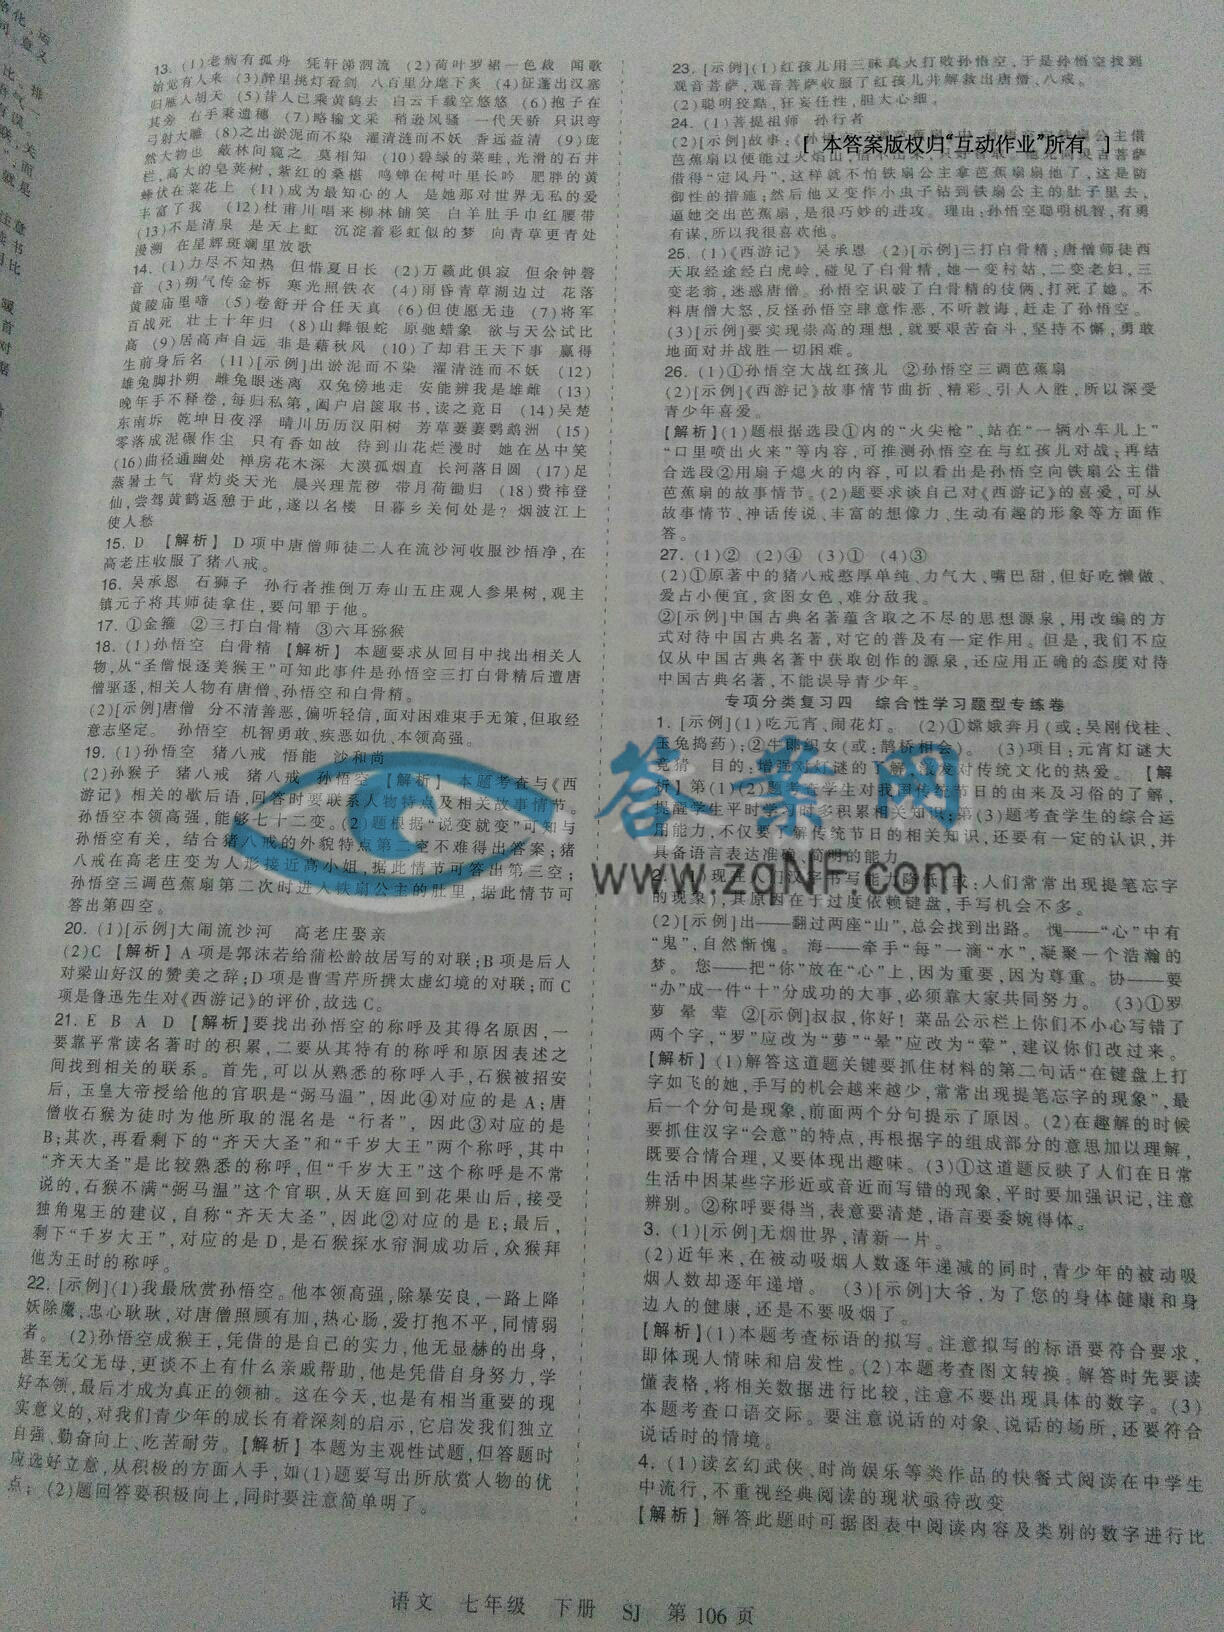 13. (1)老病有孤舟　凭轩涕泗流　(2)荷叶罗裙一色裁　闻歌
始觉有人来　(3)醉里挑灯看剑　八百里分麾下炙　(4)征蓬出汉塞
归雁入胡天　(5)昔人已乘黄鹤去　白云千载空悠悠　(6)抱子在
其旁　右手秉遗穗　(7)略输文采　稍逊风骚　一代天骄　只识弯
弓射大雕　(8)之出淤泥而不染　濯清涟而不妖　香远益清　(9)庞
然大物也　蔽林间窥之　莫相知　(10)碧绿的菜畦,光滑的石井
栏,高大的皂荚树,紫红的桑椹　鸣蝉在树叶里长吟　肥胖的黄
蜂伏在菜花上　(11)成为最知心的人　是她那对世界无私的爱
丰富了我　(12)杜甫川唱来柳林铺笑　白羊肚手巾红腰带
(13)不是清泉　是天上虹　沉淀着彩虹似的梦　向青草更青处
漫溯　在星辉斑斓里放歌
14. (1)力尽不知热　但惜夏日长　(2)万籁此俱寂　但余钟磬
音　(3)朔气传金柝　寒光照铁衣　(4)雨昏青草湖边过　花落
黄陵庙里啼　(5)卷舒开合任天真　(6)但使愿无违　(7)将军
百战死　壮士十年归　(8)山舞银蛇　原驰蜡象　欲与天公试比
高　(9)居高声自远　非是藉秋风　(10)了却君王天下事　赢得
生前身后名　(11)[示例]出淤泥而不染　濯清涟而不妖　(12)
雄兔脚扑朔　雌兔眼迷离　双兔傍地走　安能辨我是雄雌　(13)
晚年手不释卷,每归私第,阖户启箧取书,读之竟日　(14)吴楚
东南坼　乾坤日夜浮　晴川历历汉阳树　芳草萋萋鹦鹉洲　(15)
零落成泥碾作尘　只有香如故　待到山花烂漫时　她在丛中笑
(16)曲径通幽处　禅房花木深　大漠孤烟直　长河落日圆　(17)足
蒸暑土气　背灼炎天光　晨兴理荒秽　带月荷锄归　(18)费祎登
仙,尝驾黄鹤返憩于此,遂以名楼　日暮乡关何处是?烟波江上
使人愁
15. D　[解析]　D项中唐僧师徒二人在流沙河收服沙悟净,在
高老庄收服了猪八戒。
16. 吴承恩　石狮子　孙行者推倒万寿山五庄观人参果树,观主
镇元子将其师徒拿住,要问罪于他。
17. ①金箍　②三打白骨精　③六耳猕猴
18. (1)孙悟空　白骨精　[解析]　本题要求从回目中找出相关人
物,从“圣僧恨逐美猴王”可知此事件是孙悟空三打白骨精后遭唐
僧驱逐,相关人物有唐僧、孙悟空和白骨精。
(2)[示例]唐僧　分不清善恶,偏听轻信,面对困难束手无策,但取经
意志坚定。　孙悟空　机智勇敢、疾恶如仇、本领高强。
19. (1)孙悟空　猪八戒　悟能　沙和尚
(2)孙猴子　猪八戒　猪八戒　孙悟空　[解析]　本题考查与《西
游记》相关的歇后语,回答时要联系人物特点及相关故事情节。
孙悟空本领高强,能够七十二变。(2)题根据“说变就变”可知与
孙悟空有关,结合猪八戒的外貌特点第二空不难得出答案;猪
八戒在高老庄变为人形接近高小姐,据此情节可答出第三空;
孙悟空三调芭蕉扇第二次时进入铁扇公主的肚里,据此情节可
答出第四空。
20. (1)[示例]大闹流沙河　高老庄娶亲
(2)C　[解析]　A项是郭沫若给蒲松龄故居写的对联;B项是后人
对梁山好汉的赞美之辞;D项是曹雪芹所撰太虚幻境的对联;而C
项是鲁迅先生对《西游记》的评价,故选C。
21. E　B　A　D　[解析]要找出孙悟空的称呼及其得名原因,一
要靠平常读名著时的积累,二要从其特有的称呼和原因表述之
间找到相关的联系。首先,可以从熟悉的称呼人手,石猴被招安
后,玉皇大帝授给他的官职是“弼马温”,因此④对应的是A;唐
僧收石猴为徒时为他所取的混名是“行者”,因此③对应的是
B;其次,再看剩下的“齐天大圣”和“千岁大王”两个称呼,其中
“齐天大圣”是比较熟悉的称呼,但“千岁大王”这个称呼是不常
说的,石猴不满“弼马温”这个官职,从天庭回到花果山后,接受
独角鬼王的建议,自称“齐天大圣”,因此②对应的是E;最后,
剩下“千岁大王”,对应的是D,是石猴探水帘洞成功后,众猴拜
他为王时的称呼。
22. [示例](1)我最欣赏孙悟空。他本领高强,除暴安良,一路上降
妖除魔,忠心耿耿,对唐僧照顾有加,热心肠,爱打抱不平,同情弱
者。　(2)孙悟空成猴王,凭借的是自己的实力,他无显赫的出身,
甚至无父无母,更谈不上有什么亲戚帮助,他是凭借自身努力,学
好本领,最后才成为真正的领袖。这在今天,也是有相当重要的现
实意义的,对我们青少年的成长有着深刻的启示,它启发我们独立
自强、勤奋向上、吃苦耐劳。[解析]本题为主观性试题,但答题时
应选好立意,从积极的方面人手,如(1)题要写出所欣赏人物的优
点;(2)题回答要积极向上,同时要注意简单明了。
23. [示例](1)红孩儿用三昧真火打败孙悟空,于是孙悟空找到
观音菩萨,观音菩萨收服了红孩儿并解救出唐僧、八戒。
(2)聪明狡黠,狂妄任性,胆大心细。
24. (1)菩提祖师　孙行者
[ 本答案版权归“互动作业”所有 ]
借得“定风丹”,这样就不怕铁扇公主拿芭蕉扇扇他了,这是防
御性的措施;然后他又变作小虫子钻到铁扇公主的肚子里去,
逼她交出芭蕉扇,是很巧妙的进攻。理由:孙悟空聪明机智,有勇
有谋,所以我很喜欢他。
25. (1)《西游记》　吴承恩　(2)[示例]三打白骨精:唐僧师徒西
天取经途经白虎岭,碰见了白骨精,她一变村姑,二变老妇,三
变老翁,迷惑唐僧。孙悟空识破了白骨精的伎俩,打死了她。不
料唐僧大怒,反怪孙悟空肆意作恶,不听教诲,赶走了孙悟空。
(3)[示例]要实现崇高的理想,就要艰苦奋斗,坚持不懈,勇敢
地面对并战胜一切困难。
26. (1)①孙悟空大战红孩儿　②孙悟空三调芭蕉扇
(2)[示例]《西游记》故事情节曲折、精彩、引人入胜,所以深受
青少年喜爱。
[解析](1)题根据选段①内的“火尖枪”,站在“一辆小车儿上”
“口里喷出火来”等内容,可推测孙悟空在与红孩儿对战;再结
合选段②用扇子熄火的内容,可以看出是孙悟空向铁扇公主借
芭蕉扇的故事情节。(2)题要求谈自己对《西游记》的喜爱,可从
故事情节、神话传说、丰富的想像力、生动有趣的形象等方面作
答。
27. (1)②　(2)④　(3)①　(4)③
(2)①原著中的猪八戒憨厚单纯、力气大、嘴巴甜,但好吃懒做、
爱占小便宜,贪图女色,难分敌我。
②[示例]中国古典名著蕴含取之不尽的思想源泉,用改编的方
式对待中国古典名著,对它的普及有一定作用。但是,我们不应
仅从中国古典名著中获取创作的源泉,还应用正确的态度对待
中国古典名著,不能误导青少年。
专项分类复习四　综合性学习题型专练卷
1. [示例](1)吃元宵、闹花灯。　(2)①嫦娥奔月(或:吴刚伐桂、
玉兔捣药);②牛郎织女(或:鹊桥相会)。　(3)项目:元宵灯谜大
竞猜　目的:增强对灯谜的了解,激发对传统文化的热爱。　[解
析]第(1)(2)题考查学生对我国传统节日的由来及习俗的了解,
提醒学生平时学习时多积累相关知识;第(3)题考查学生的综合运
用能力,不仅要了解传统节日的相关知识,还要有一定的认识,并
具备语言表达准确、简明的能力。
答案网
www.zqNF.com
2. (1)现在人们汉字书写能力降低(或:人们常常出现提笔忘字
的现象),其原因在于过度依赖键盘,手写机会不多。
(2)[示例]出——翻过两座“山”,总会找到出路。　愧——“心”中有
“鬼”,自然惭愧。　海——牵手“每”一滴“水”,凝聚一个浩瀚的
梦。　您——把“你”放在“心”上,因为重要,因为尊重。　协——要
“办”成一件“十”分成功的大事,必须靠大家共同努力。　(3)①罗
萝　晕　荤　②[示例]叔叔,你好!菜品公示栏上你们不小心写错了
两个字,“罗”应改为“萝”“晕”应改为“荤”,建议你们改过来。
[解析](1)解答这道题关键要抓住材料的第二句话“在键盘上打
字如飞的她,手写的机会越来越少,常常出现提笔忘字的现象”,最
后一个分句是现象,前面两个分句提示了原因。(2)在趣解的时候
要抓住汉字“会意”的特点,再根据字的组成部分的意思加以理解,
既要合情合理,又要体现出趣味。(3)①这道题反映了人们在日常
生活中因某些字形近或音近而写错的现象,平时要加强识记,注意
辨别。②称呼要得当,表意要清楚,语言要委婉得体。
3. (1)[示例]无烟世界,清新一片。
(2)近年来,在被动吸烟人数逐年递减的同时,青少年的被动吸
烟人数却逐年递增。　(3)[示例]大爷,为了您的身体健康和身
边人的健康,还是不要吸烟了。
[解析](1)本题考查标语的拟写。注意拟写的标语要符合要求,
即体现人情味和启发性。(2)本题考查图文转换。解答时先要读
懂表格,将相关数据进行比较,注意不要出现具体的数字。(3)
本题考查口语交际。要注意说话的对象、说话的场所,还要符合
说话时的情境。
4. (1)读玄幻武侠、时尚娱乐等类作品的快餐式阅读在中学生
中流行,不重视经典阅读的现状亟待改变
[解析]　解答此题时可据图表中阅读内容及类别的数字进行比
语文　七年级　下册　SJ　第106页